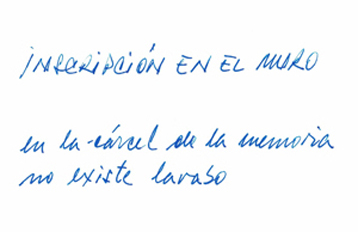 INSCRIPCIÓN EN EL MURO
en la cárcel de la memoria
no existe lavabo